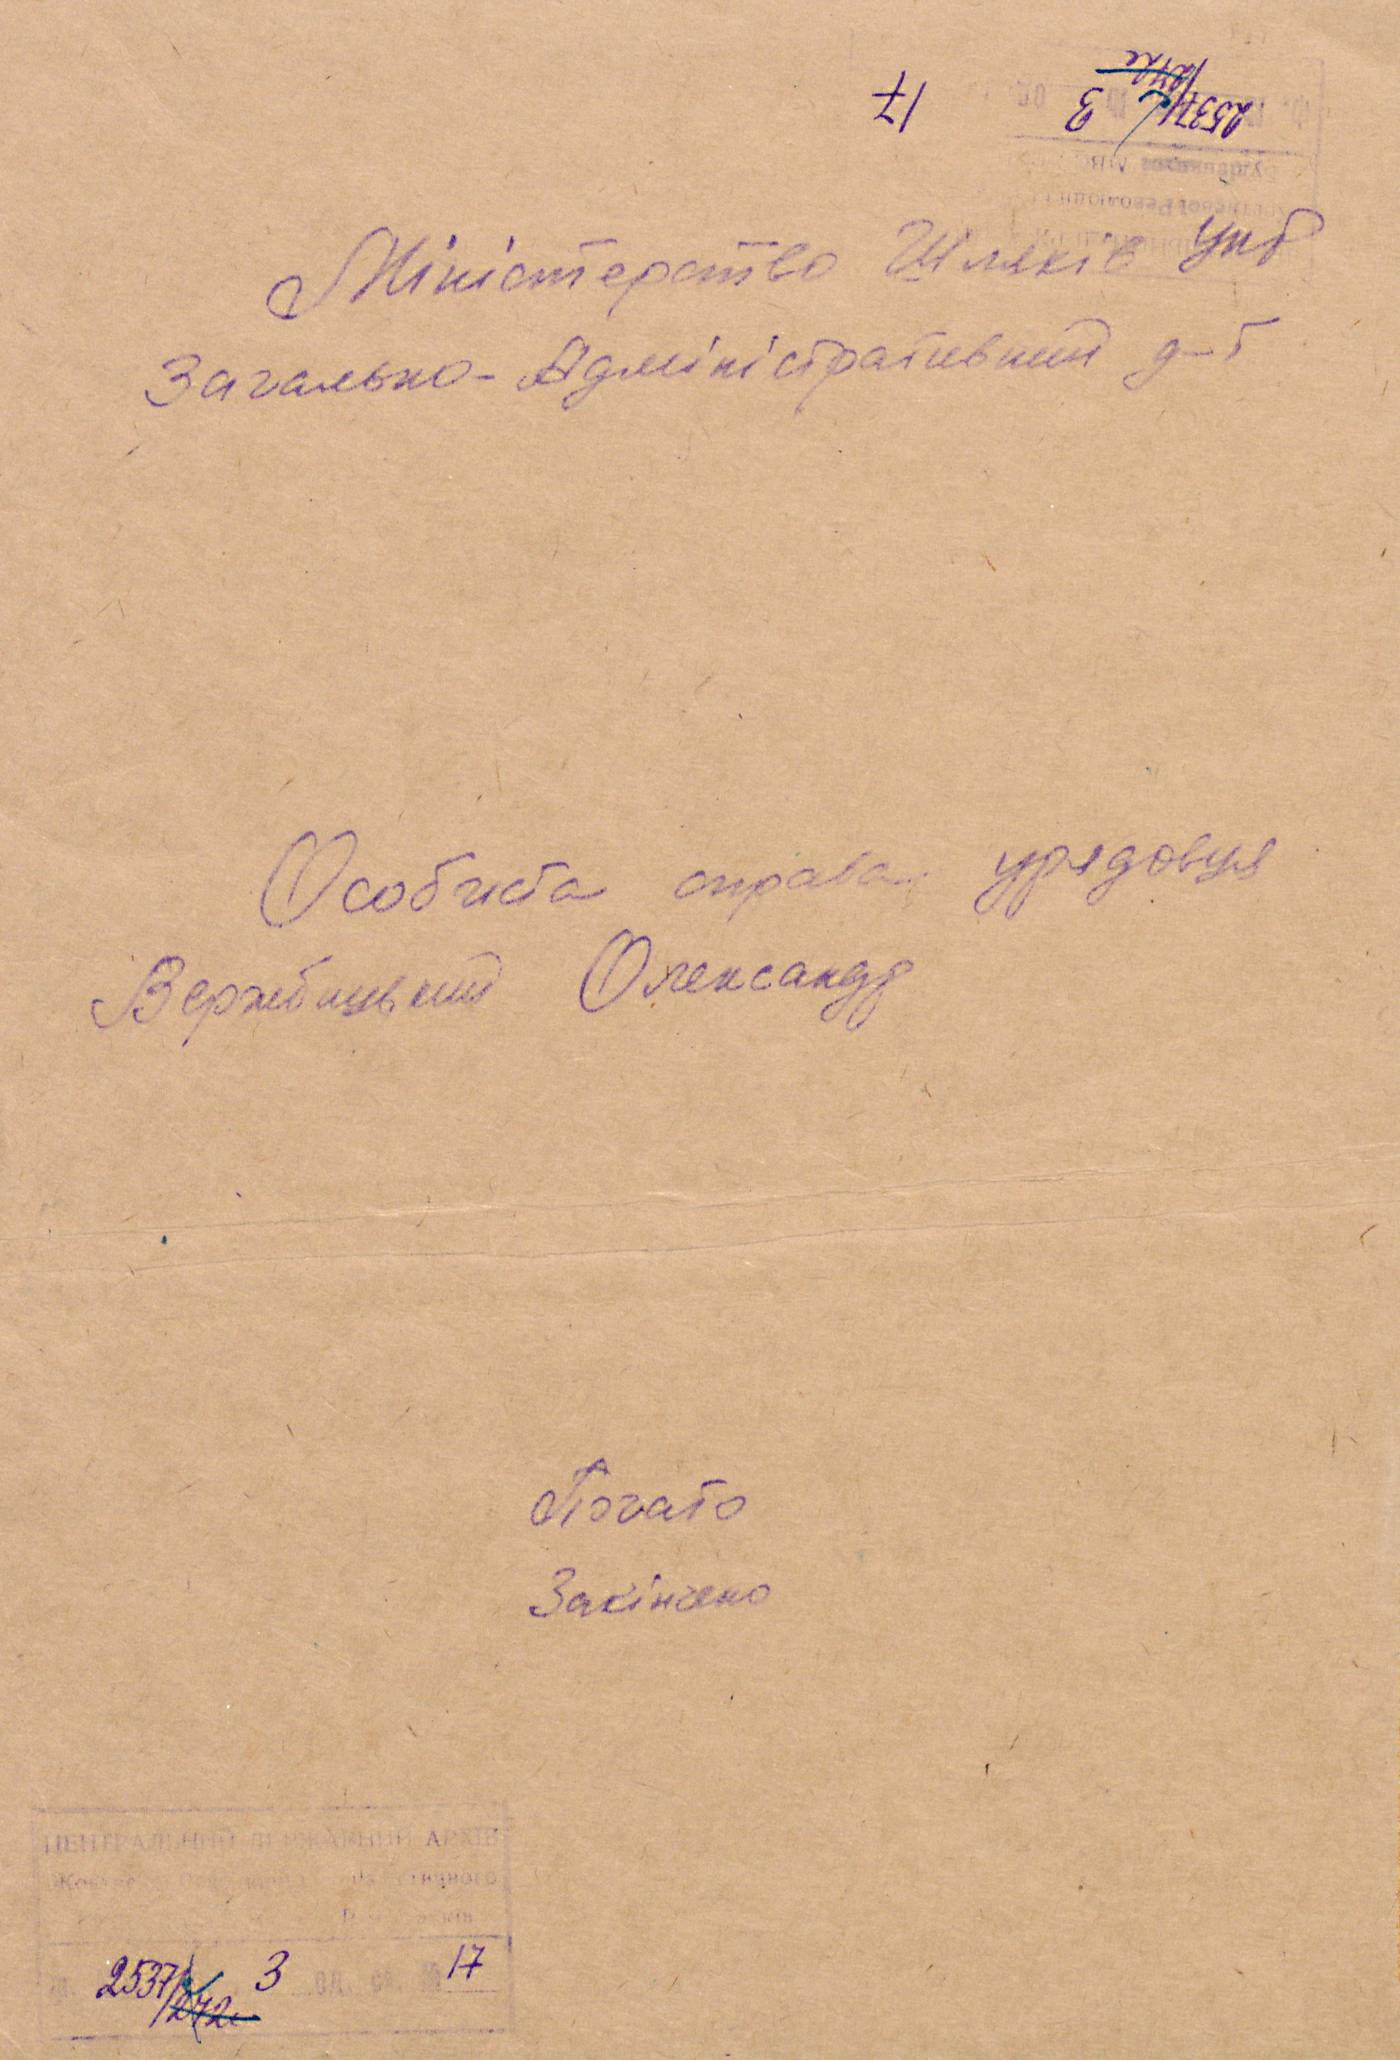 17 3 2537
Міністерство Шляків УНР
Загально-Адміністративний д-т
Особиста справа урядовця
Вержбицький Олександр
Почато
Закінчено
ЦЕНТРАЛЬНИЙ ДЕРЖАВНИЙ АРХІВ
2537 3 оп. 17